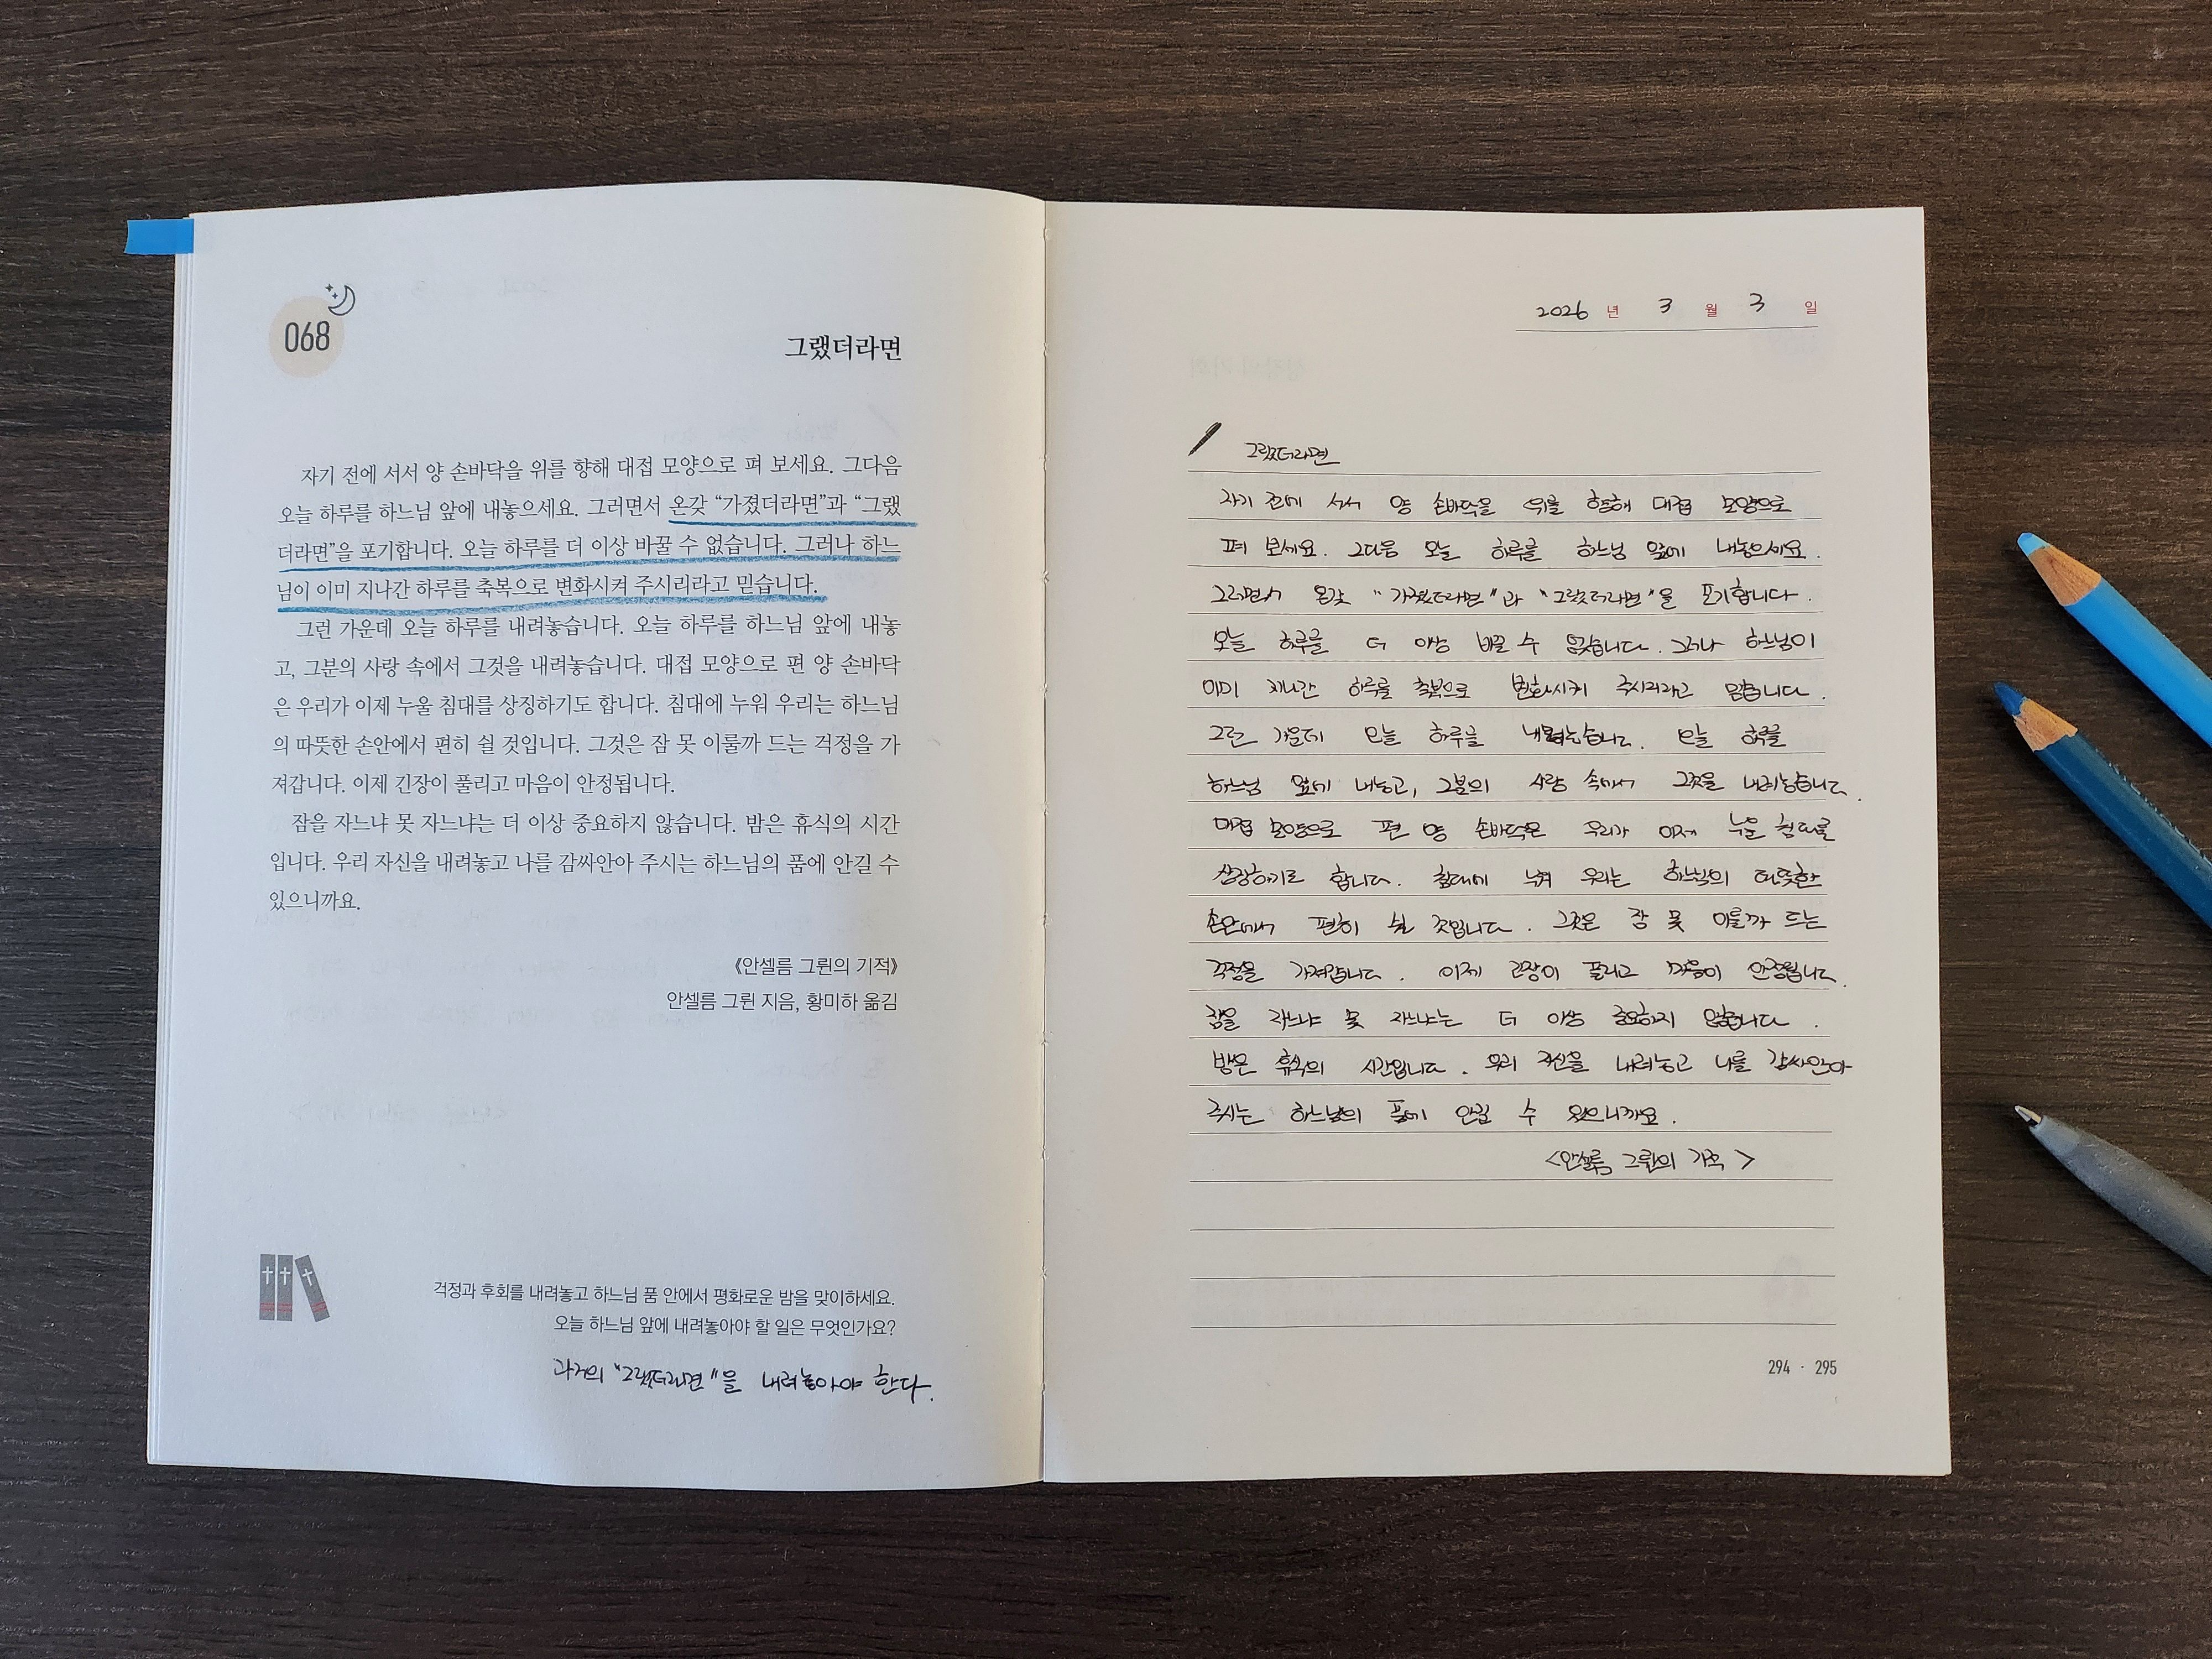 068
그랬더라면
자기 전에 서서 양 손바닥을 위를 향해 대접 모양으로 펴 보세요. 그다음
오늘 하루를 하느님 앞에 내놓으세요. 그러면서 온갖 “가졌더라면”과 “그랬
더라면”을 포기합니다. 오늘 하루를 더 이상 바꿀 수 없습니다. 그러나 하느
님이 이미 지나간 하루를 축복으로 변화시켜 주시리라고 믿습니다.
그런 가운데 오늘 하루를 내려놓습니다. 오늘 하루를 하느님 앞에 내놓
고, 그분의 사랑 속에서 그것을 내려놓습니다. 대접 모양으로 편 양 손바닥
은 우리가 이제 누울 침대를 상징하기도 합니다. 침대에 누워 우리는 하느님
의 따뜻한 손안에서 편히 쉴 것입니다. 그것은 잠 못 이룰까 드는 걱정을 가
져갑니다. 이제 긴장이 풀리고 마음이 안정됩니다.
잠을 자느냐 못 자느냐는 더 이상 중요하지 않습니다. 밤은 휴식의 시간
입니다. 우리 자신을 내려놓고 나를 감싸안아 주시는 하느님의 품에 안길 수
있으니까요.
《안셀름 그륀의 기적》
안셀름 그륀 지음, 황미하 옮김
걱정과 후회를 내려놓고 하느님 품 안에서 평화로운 밤을 맞이하세요.
오늘 하느님 앞에 내려놓아야 할 일은 무엇인가요?
과거의 "그랬더라면"을 내려놓아야 한다.
2026 년 3 월 3 일
그랬더라면
자기 전에 서서 양 손바닥을 위를 향해 대접 모양으로
펴 보세요. 그다음 오늘 하루를 하느님 앞에 내놓으세요.
그러면서 온갖 "가졌더라면"과 "그랬더라면"을 포기합니다.
오늘 하루를 더 이상 바꿀 수 없습니다. 그러나 하느님이
이미 지나간 하루를 축복으로 변화시켜 주시리라고 믿습니다.
그런 가운데 오늘 하루를 내려놓습니다. 오늘 하루를
하느님 앞에 내놓고, 그분의 사랑 속에서 그것을 내려놓습니다.
대접 모양으로 편 양 손바닥은 우리가 이제 누울 침대를
상징하기도 합니다. 침대에 누워 우리는 하느님의 따뜻한
손안에서 편히 쉴 것입니다. 그것은 잠 못 이룰까 드는
걱정을 가져갑니다. 이제 긴장이 풀리고 마음이 안정됩니다.
잠을 자느냐 못 자느냐는 더 이상 중요하지 않습니다.
밤은 휴식의 시간입니다. 우리 자신을 내려놓고 나를 감싸안아
주시는 하느님의 품에 안길 수 있으니까요.
<안셀름 그륀의 기적>
294 · 295